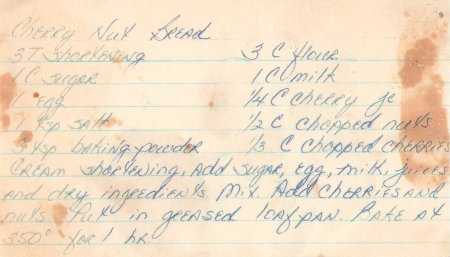 Cherry Nut Bread
3T shortening 3 C flour
1 C sugar 1 C milk
1 egg 1/4 C cherry
1 tsp salt 1/2 C chopped nuts
3 tsp baking powder 1/3 C chopped cherries
Cream shortening, add sugar, egg, milk, juices
and dry ingredients Mix. Add cherries and
nuts Put in greased loaf pan. Bake at
350° for 1 hr.